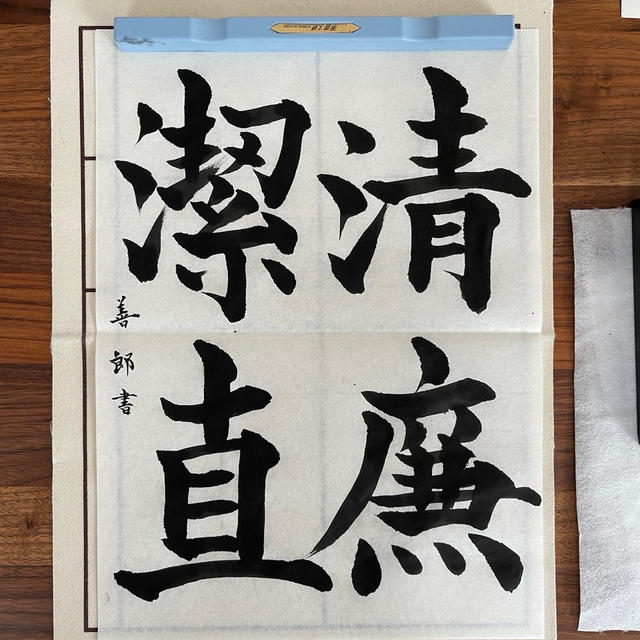 清廉
潔直
善郎書